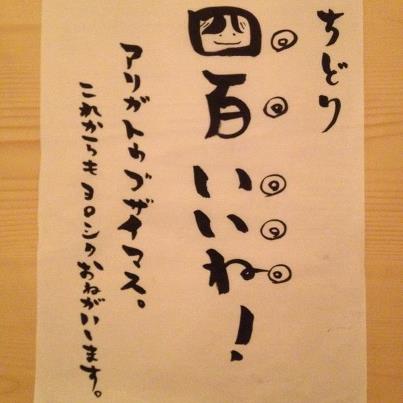 ちどり
四百いいね！
アリガトゥブザイマス。
これからもヨロシク、おねがいします。